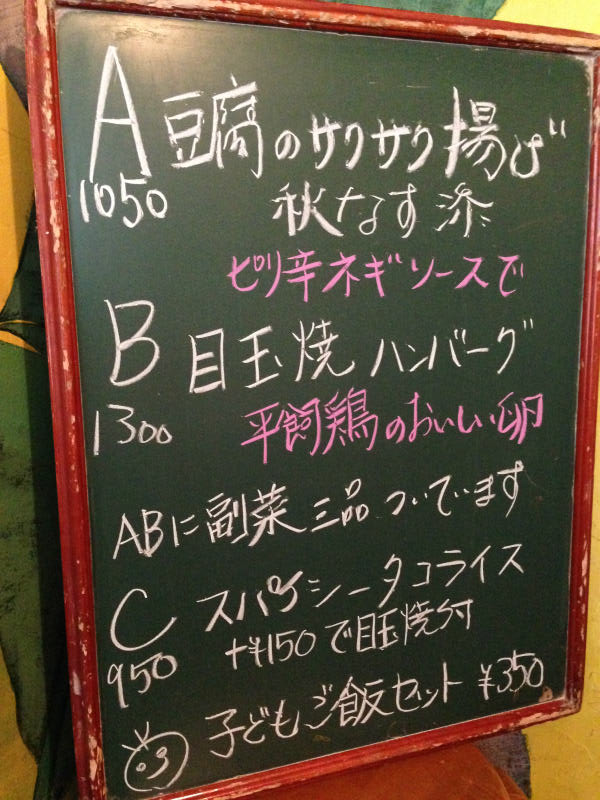 A 豆腐のサクサク揚げ
1050 秋なす添
ピリ辛ネギソースで
B 目玉焼ハンバーグ
1300 平飼鶏のおいしい卵
ABに副菜三品ついています
C スパイシータコライス
950 +¥150で目玉焼付
子どもご飯セット ¥350